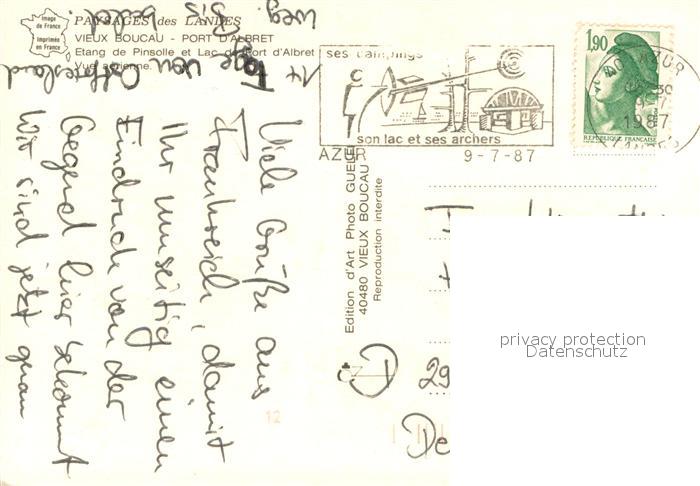 Image
de France
Imprimée
en France
PAYSAGES des LANDES
VIEUX BOUCAU - PORT D'ALBRET
Etang de Pinsolle et Lac de Port d'Albret
Vue aérienne.
ses campings
son lac et ses archers
AZUR
9-7-87
1,90
REPUBLIQUE FRANÇAISE
1987
Edition d'Art Photo GUEL
40480 VIEUX BOUCAU
Reproduction interdite
Viele Grüße aus
Frankreich, damit
Ihr umseitig einen
Eindruck von der
Gegend hier bekommt
Wir sind jetzt genau
14 Tage von Ostfriesland
weg. Bis bald.
D 29
De
12
privacy protection
Datenschutz